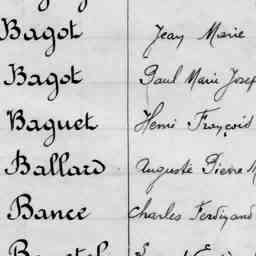 Bagot Jean Marie
Bagot Paul Marie Josep
Baguet Henri François
Ballard Auguste Pierre
Bance Charles Ferdinand